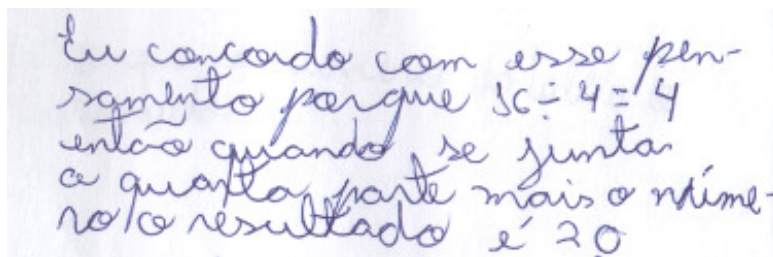 Eu concordo com esse pen-
samento porque 16÷4=4
então quando se junta
a quarta parte mais o núme-
ro o resultado é 20